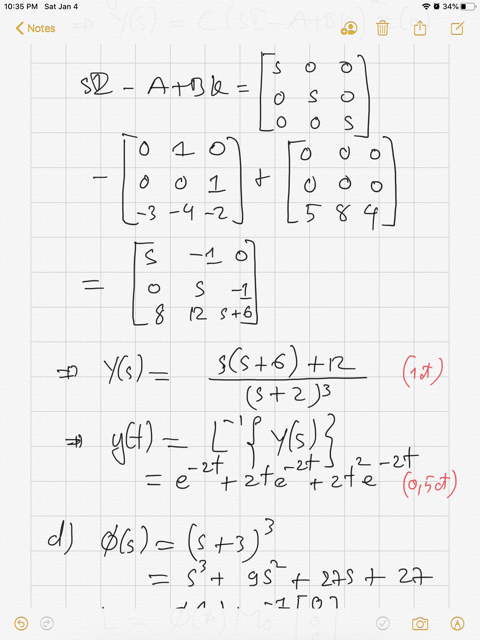 10:35 PM Sat Jan 4
34%
Notes
⇒ Y(s) = C(sI - A + BK
sI - A + BK = [s 0 0
0 s 0
0 0 s]
- [0 1 0
0 0 1
-3 -4 -2] + [0 0 0
0 0 0
5 8 4]
= [s -1 0
0 s -1
8 12 s+6]
⇒ Y(s) = s(s+6) + 12 / (s+2)³ (1đ)
⇒ y(t) = L⁻¹{Y(s)}
= e^-2t + 2te^-2t + 2t²e^-2t (0,5đ)
d) φ(s) = (s+3)³
= s³ + 9s² + 27s + 27